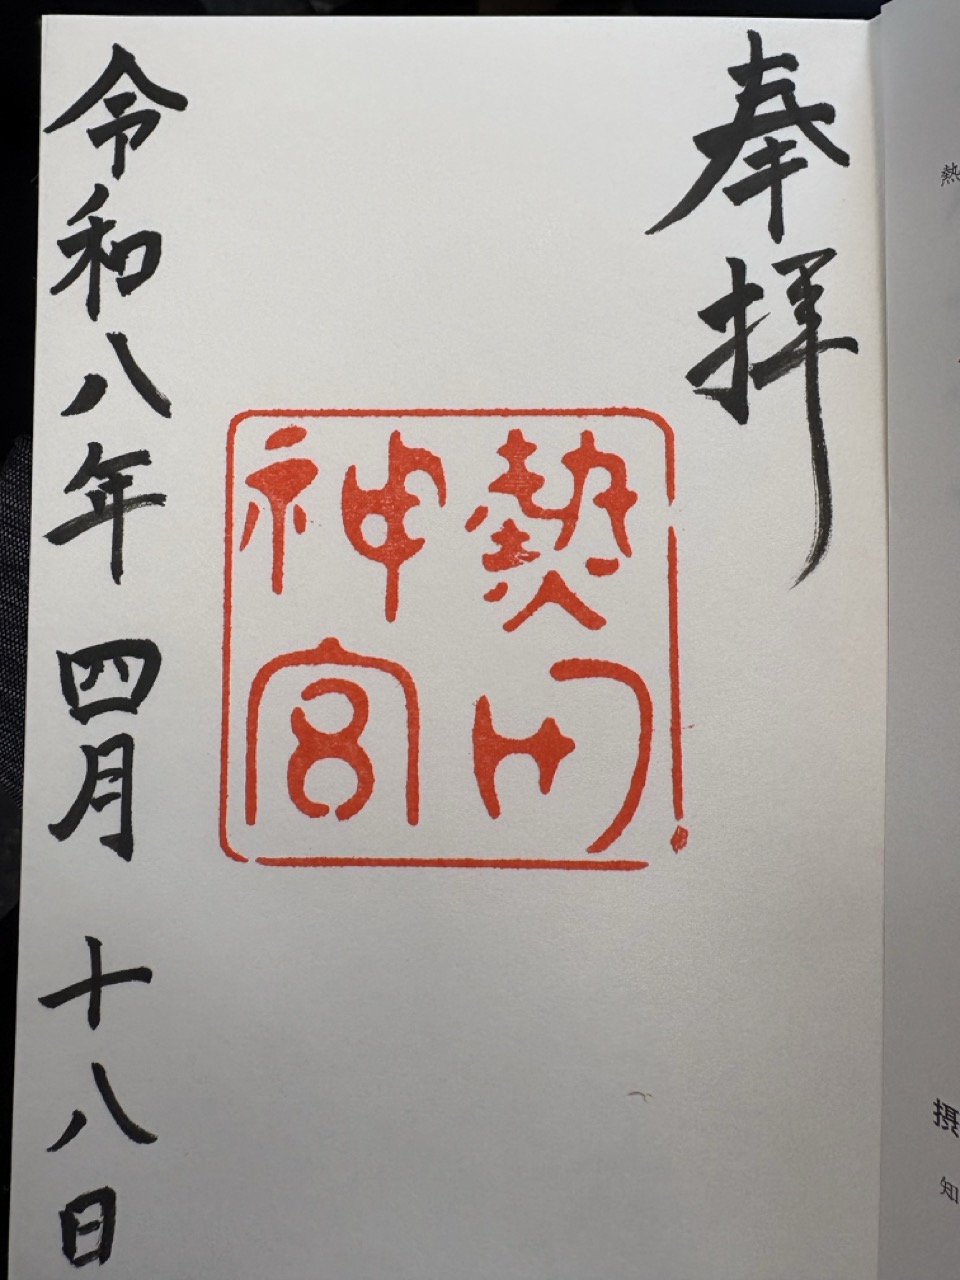 奉拝
熱田
神宮
令和八年 四月 十八日
熱
摂
知